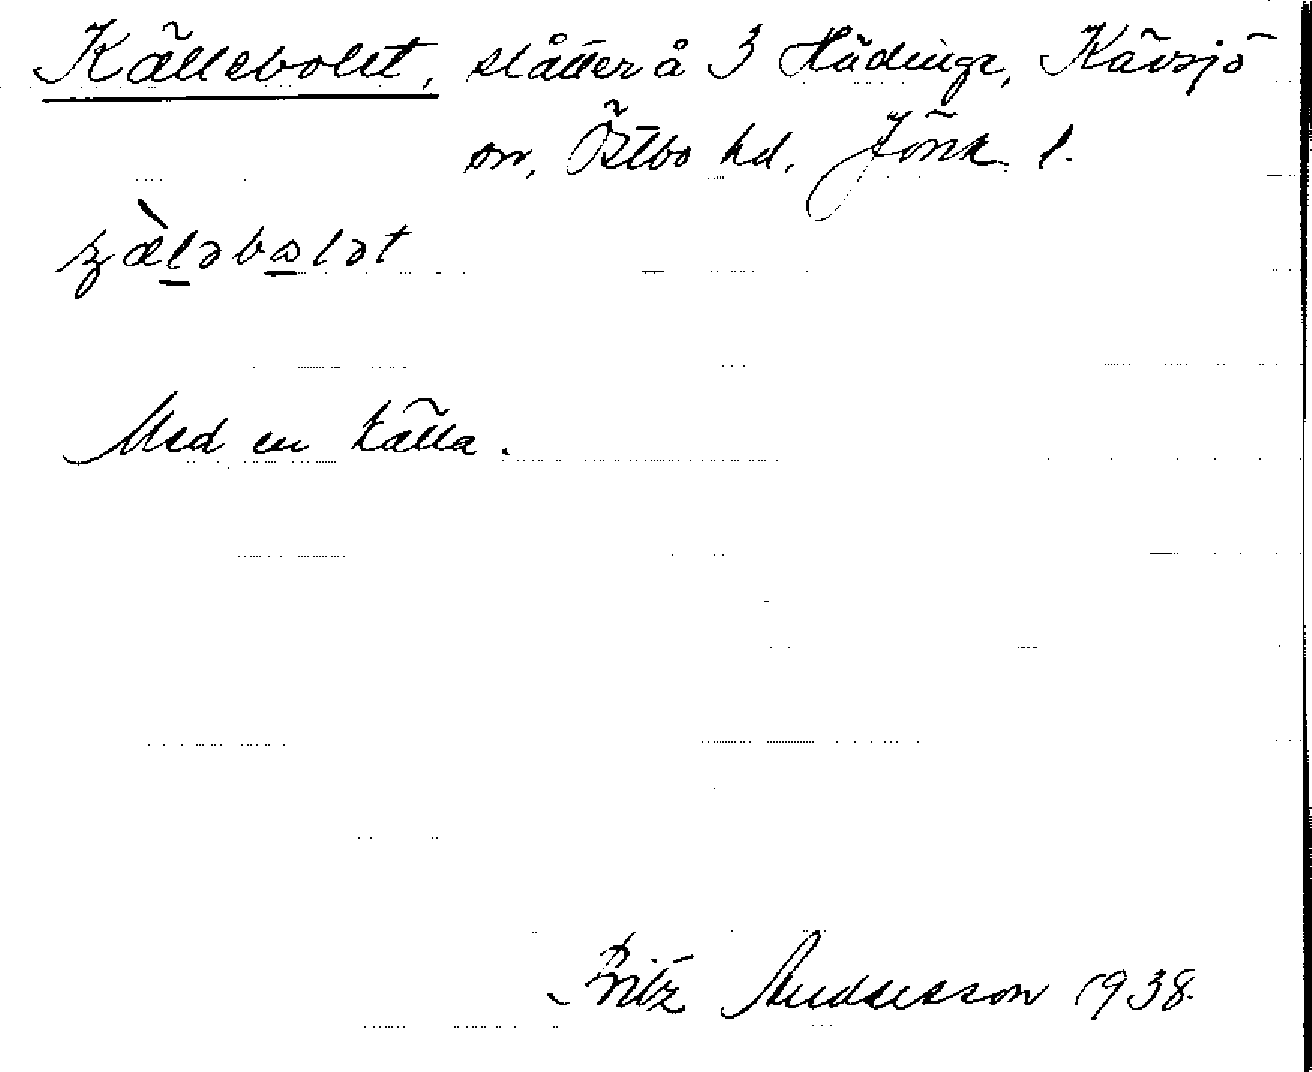 Källebolet, slåtter å 3 Hädinge, Kävsjö
sn, Östbo hd, Jönk. l.
Med en källa.
Fritz Andersson 1938.